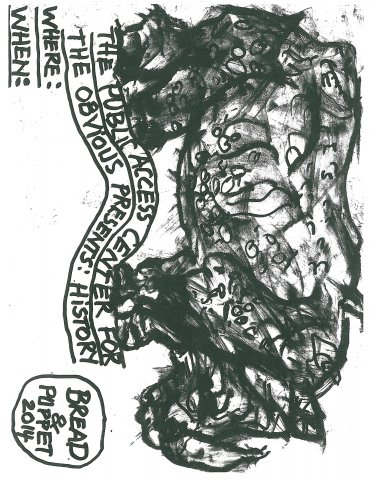 THE PUBLIC ACCESS CENTER FOR
THE OBVIOUS PRESENTS: HISTORY
WHERE:
WHEN:
BREAD
&
PUPPET
2014